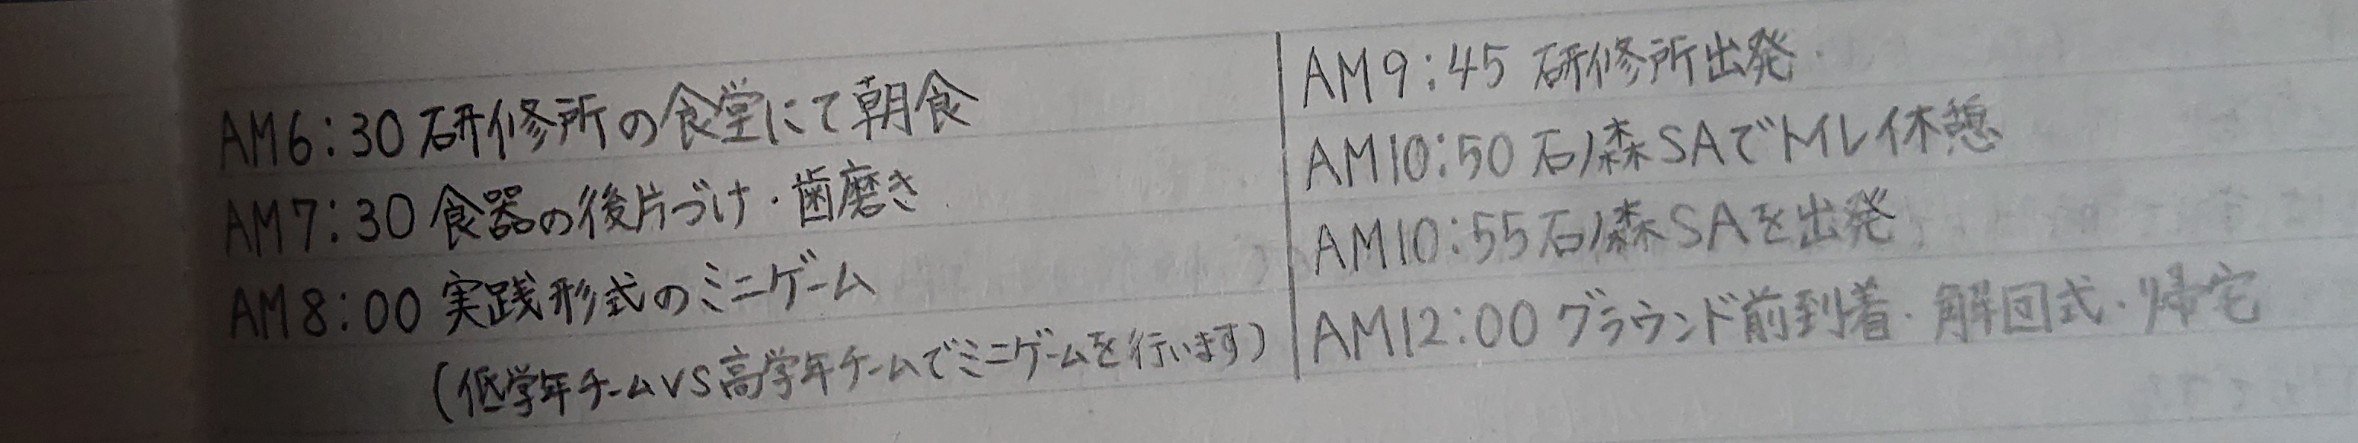 AM6:30 研修所の食堂にて朝食
AM7:30 食器の後片づけ・歯磨き
AM8:00 実践形式のミニゲーム
(低学年チームVS高学年チームでミニゲームを行います)
AM9:45 研修所出発
AM10:50 石ノ森SAでトイレ休憩
AM10:55 石ノ森SAを出発
AM12:00 グラウンド前到着・解団式・帰宅